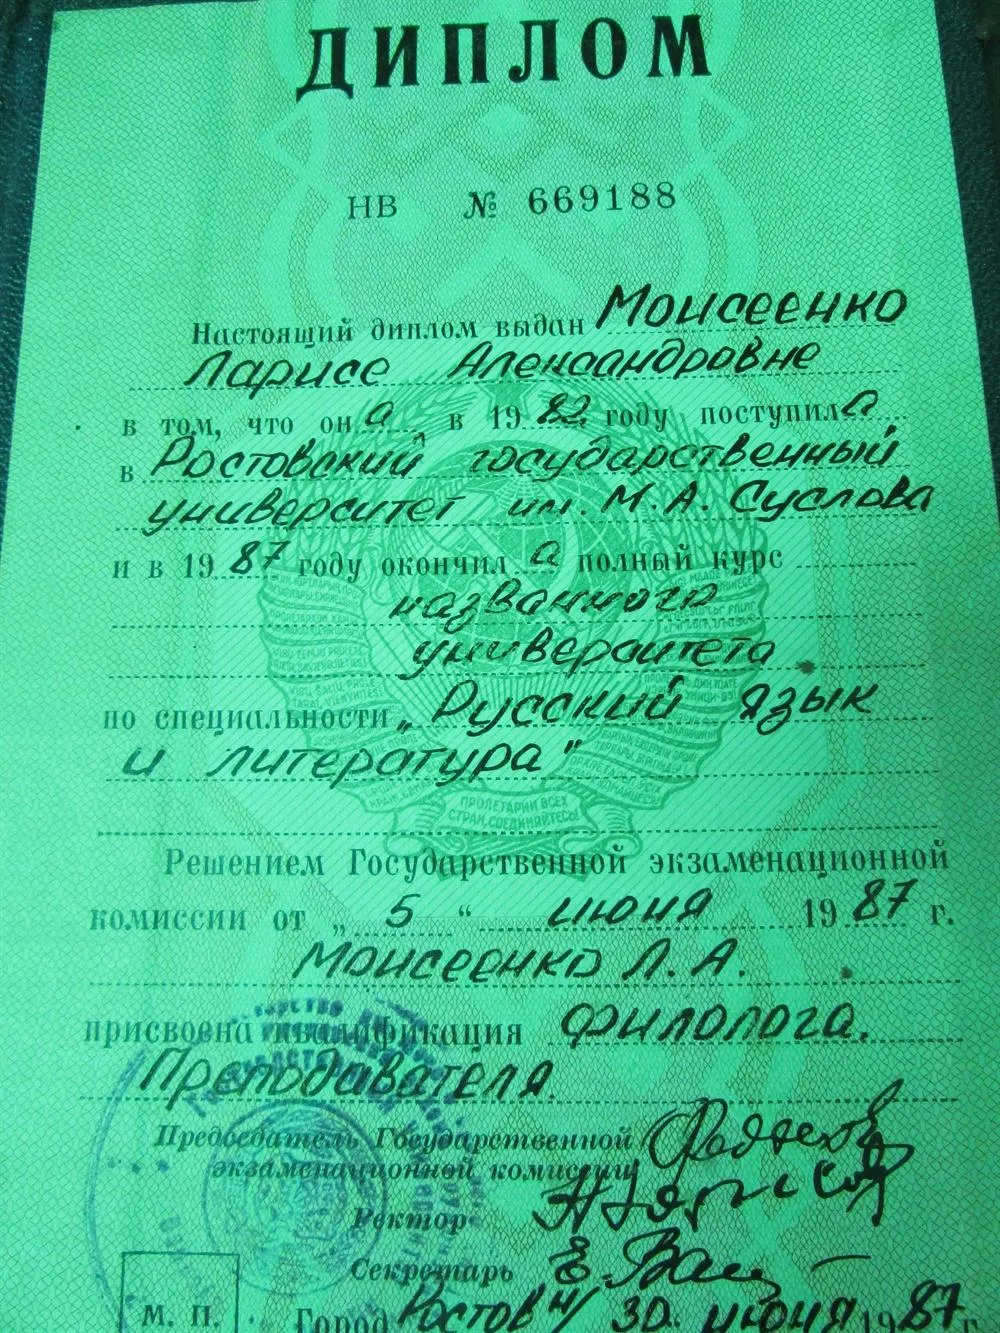 ДИПЛОМ
НВ № 669188
Настоящий диплом выдан Моисеенко
Ларисе Александровне
в том, что она в 1982 году поступила
в Ростовский государственный
университет им. М. А. Суслова
и в 1987 году окончила полный курс
названного
университета
по специальности „Русский язык
и литература"
ПРОЛЕТАРИИ ВСЕХ
СТРАН, СОЕДИНЯЙТЕСЬ!
Решением Государственной экзаменационной
комиссии от „5" июня 1987 г.
Моисеенко Л. А.
присвоена квалификация филолога.
Преподавателя.
Председатель Государственной
экзаменационной комиссии
Ректор
Секретарь
М. П. Город Ростов н/ 30 июня 1987 г.